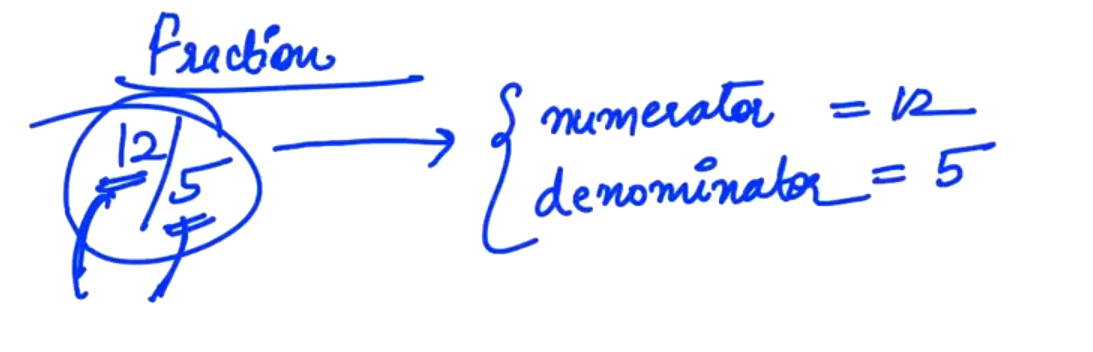 Fraction
12/5 → { numerator = 12
denominator = 5